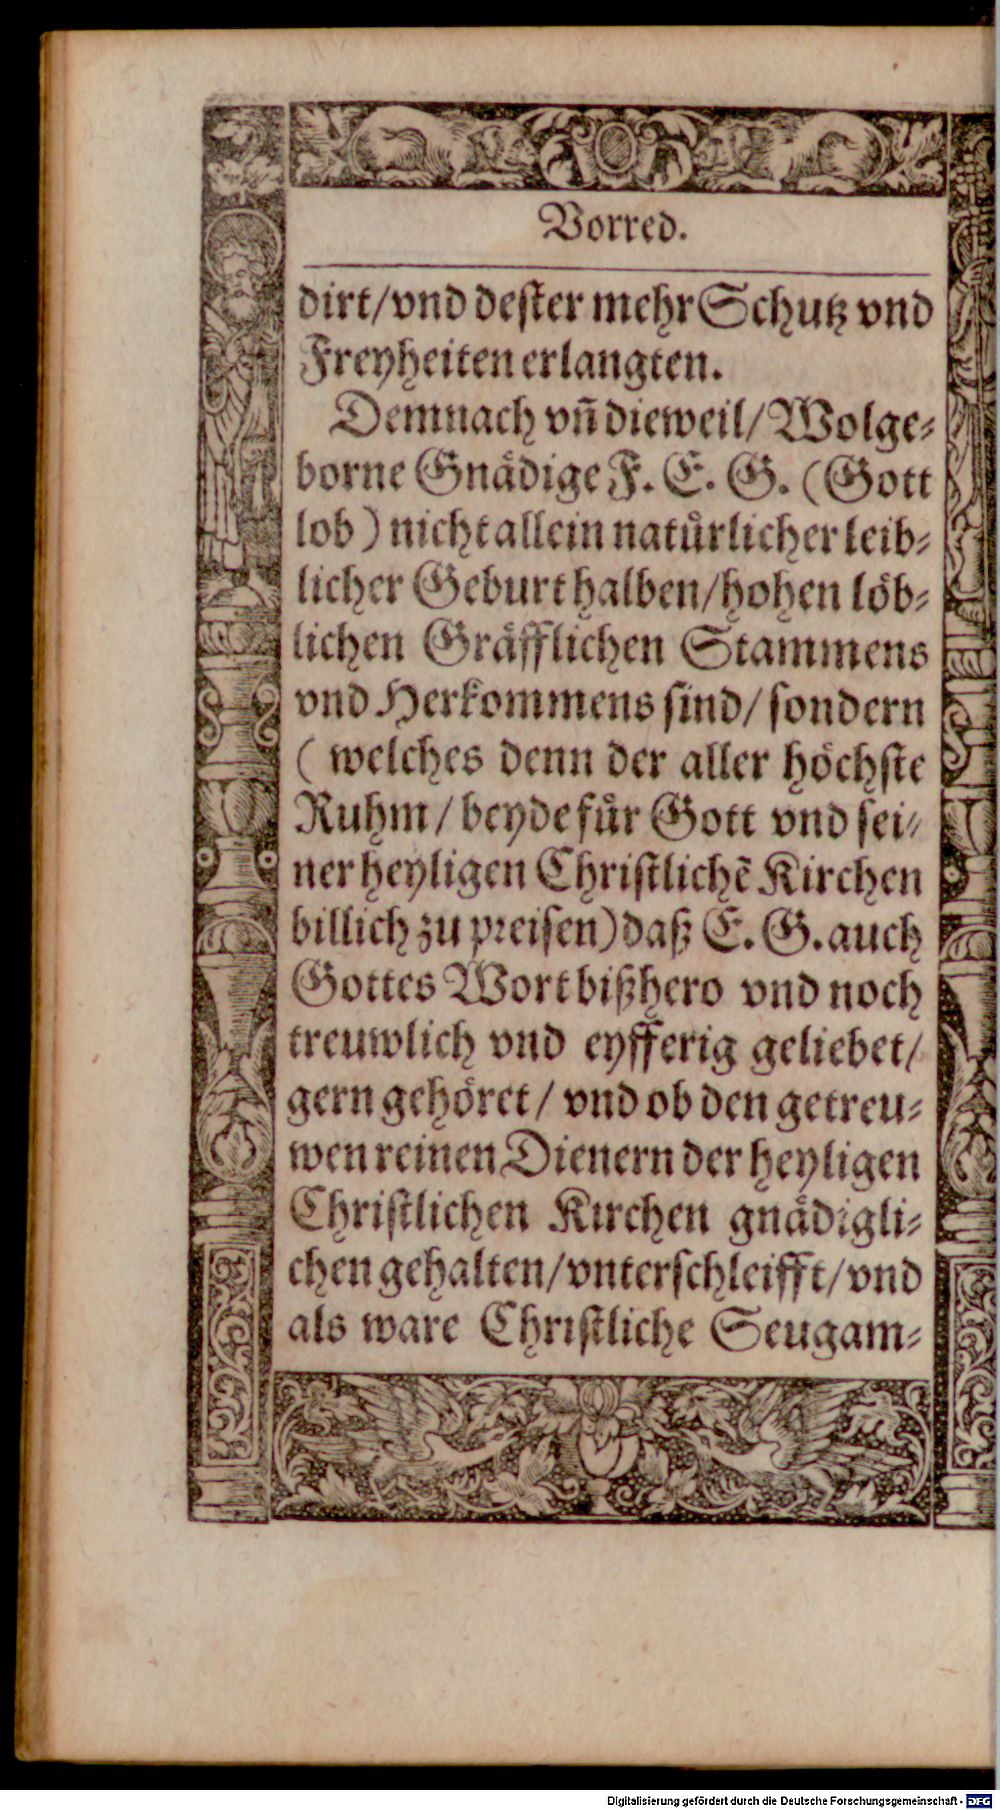 Vorred.
dirt/vnd deſter mehr Schutz vnd
Freyheiten erlangten.
Demnach vñ dieweil/Wolge⸗
borne Gnaͤdige F. E. G. (Gott
lob) nicht allein natuͤrlicher leib⸗
licher Geburt halben/hohen loͤb⸗
lichen Graͤfflichen Stammens
vnd Herkommens ſind/ſondern
(welches denn der aller hoͤchſte
Ruhm/beyde fuͤr Gott vnd ſei⸗
ner heyligen Chriſtlichẽ Kirchen
billich zu preiſen) daß E. G. auch
Gottes Wort bißhero vnd noch
treuwlich vnd eyfferig geliebet/
gern gehoͤret/vnd ob den getreu⸗
wen reinen Dienern der heyligen
Chriſtlichen Kirchen gnaͤdigli⸗
chen gehalten/vnterſchleifft/vnd
als ware Chriſtliche Seugam⸗
Digitalisierung gefördert durch die Deutsche Forschungsgemeinschaft - DFG